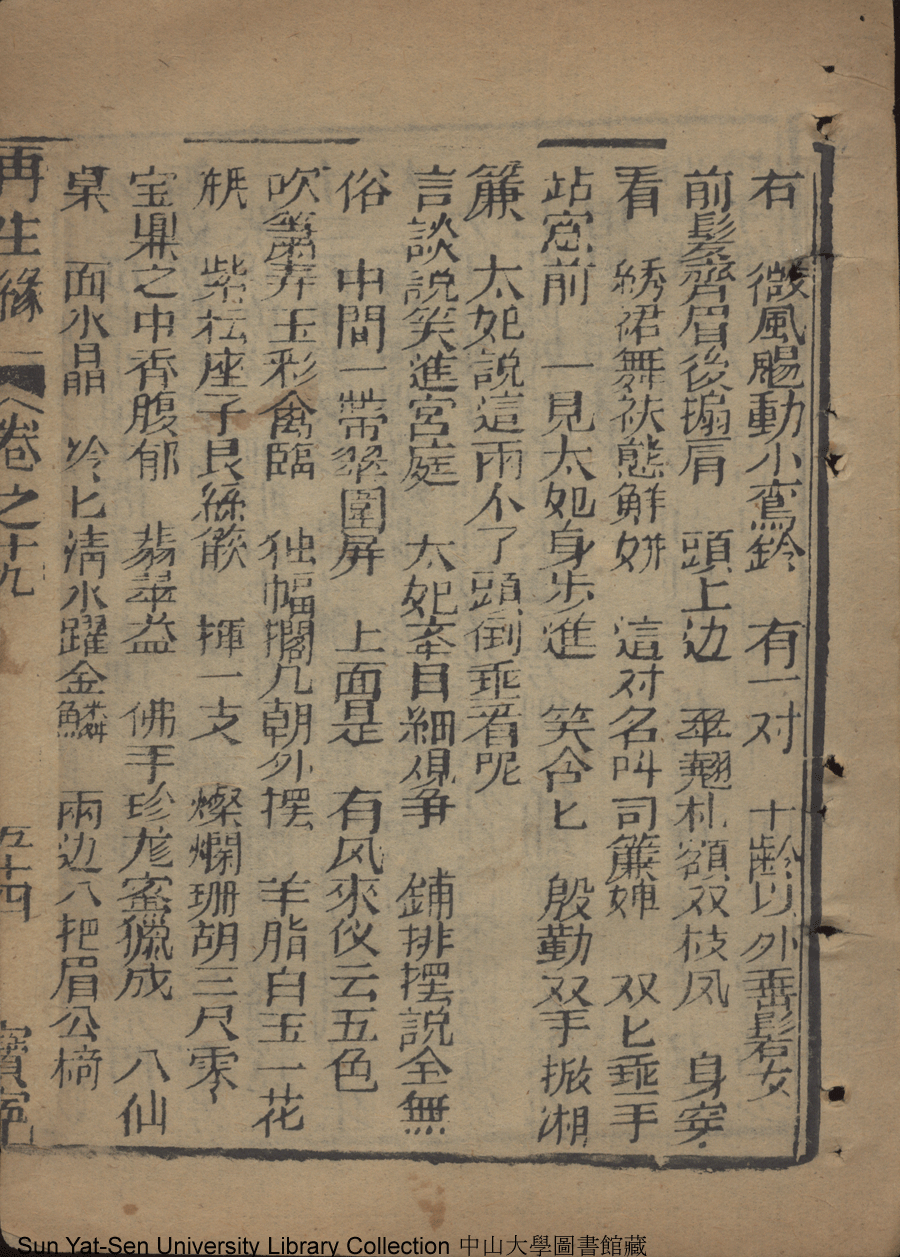 右　微風颺動小鸞鈴　有一对　十齡以外垂髫女
前髮齊眉後搧肩　頭上边　翠翹札額双枝凤　身穿
看　綉裙舞袄態鮮妍　這对名叫司簾婢　双匕垂手
站窓前　一見太妃身步進　笑含匕　殷勤双手掀湘
簾　太妃說這兩个了頭倒乖着呢
言談說笑進宮庭　太妃举目細覌爭　鋪排摆說全無
俗　中間一帶翠圍屏　上面是　有风來仪云五色
吹簫弄玉彩禽臨　独幅擱几朝外摆　羊脂白玉一花
瓶　紫枟座子良絲嵌　揷一支　燦爛珊胡三尺零
宝鼎之中香腹郁　翡翠益　佛手珍龙蜜獵成　八仙
桌　面水晶　冷匕清水躍金鱗　兩边八把眉公椅
再生緣　卷之十九　五十四　寳寧
Sun Yat-Sen University Library Collection 中山大學圖書館藏